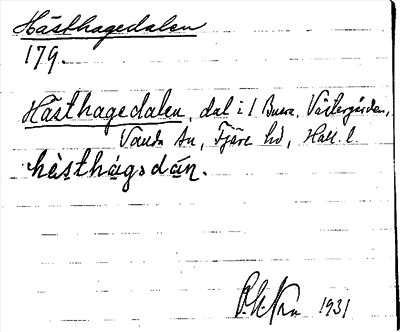 Hästhagedalen
179.
Hästhagedalen, dal i 1 Buera, Västergården,
Vanda sn, Fjäre hd, Hall. l.
hàsthágsdán.
1931